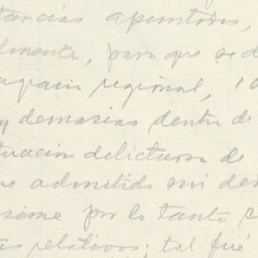 tancias apuntadas,
lmente, para que se d
agrain regional, 10
y demasias dentro de
tuacion delictuosa de
ue admitido mi de
seme por lo tanto c
as relativos; tal fué